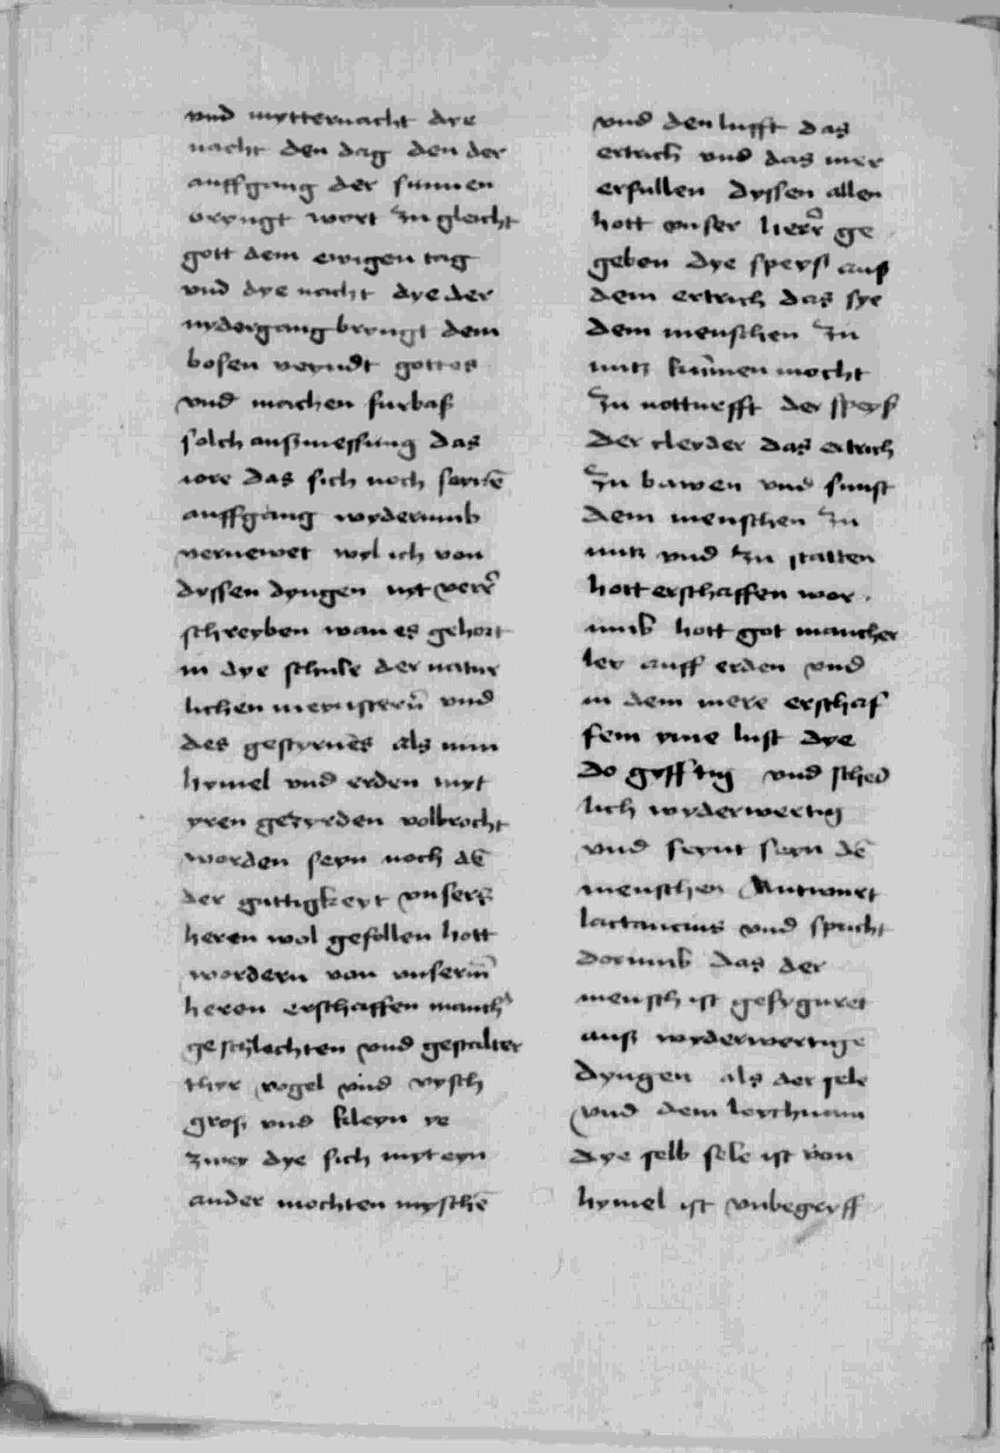 vnd mytternacht dye
nacht den dag den der
auffgang der sunnen
bryngt wyrt zu gleicht
gott dem ewigen tag
vnd dye nacht dye der
nydergang bryngt dem
bosen veyndt gottes
vnd machen furbaß
solch außmessung das
iore das sich noch seynē
auffgang wyderumb
vernewet wyl ich von
dyssen dyngen nyt verr̄
schreyben wan es gehort
in dye schule der natur
lichen meystern̄ vnd
des gestyrnes als nun
hymel vnd erden myt
yren gezyrden volbrocht
worden seyn noch dē
der guttigkeyt vnsers
heren wol gefollen hott
wordern von vnserm̄
heren erschaffen manch
geschlechten vnd gestalter
thyr vogel vnd vysch
groß vnd kleyn ye
zwey dye sich myt eyn
ander mochten myschē
vnd den lufft das
ertrich vnd das mer
erfullen dyssen allen
hott vnser herr̄ ge
geben dye speyß auß
dem ertrich das sye
dem menschen zu
nutz kum̄en mocht
zu notturfft der speyß
der cleyder das ertrich
zu bawen vnd sunst
dem menschen zu
nutz vnd zu statten
hott erschaffen wor
umb hott got mancher
ley auff erden vnd
in dem mere erschaf
fem yme lust dye
do gyfftig vnd sched
lich wyderwertig
vnd feynt seyn dē
menschen Antwurt
lactancius vnd spricht
dorumb das der
mensch ist gefyguret
auß wyderwertigē
dyngen als der sele
vnd dem leychnam
dye selb sele ist von
hymel ist vnbegryff